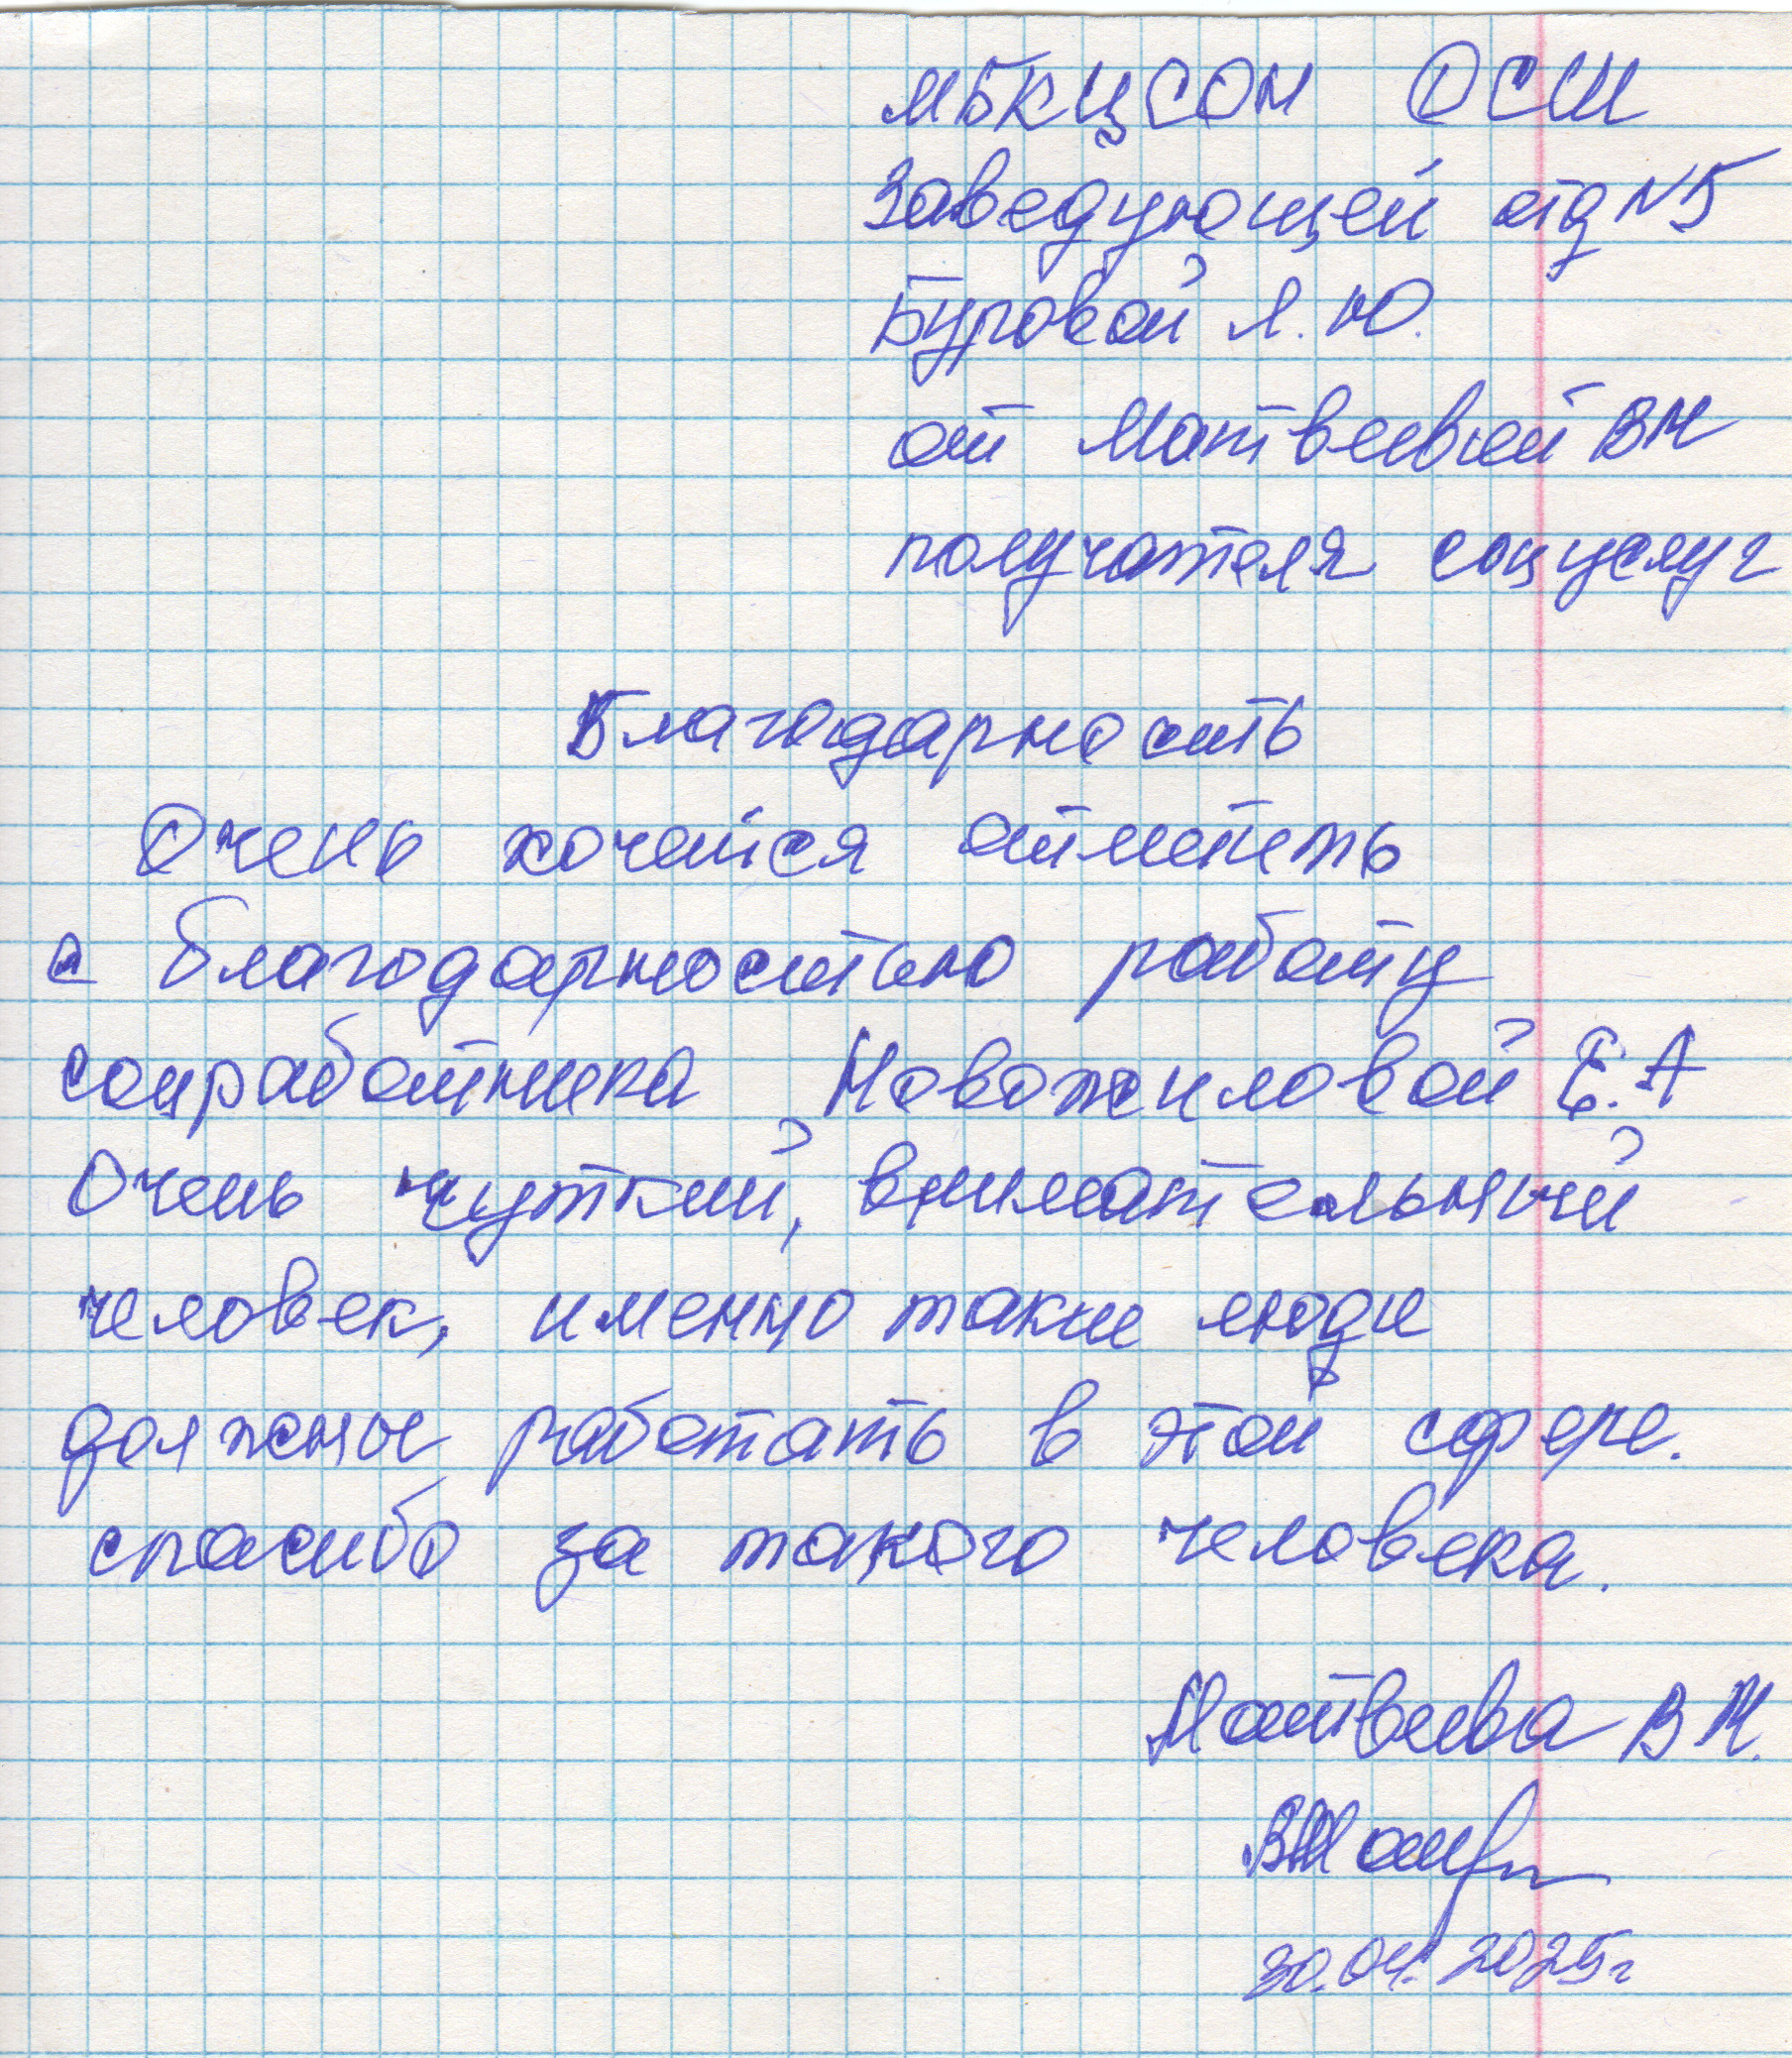 МБКЦСОН ОСИ
Заведующей отд N5
Буровой Л.Ю.
от Матвеевой ВМ
получателя соцуслуг
Благодарность
Очень хочется отметить
с благодарностью работу
соцработника Новожиловой Е.А
Очень чуткий, внимательный
человек, именно такие люди
должны работать в этой сфере.
спасибо за такого человека.
Матвеева В М.
30.04.2025г